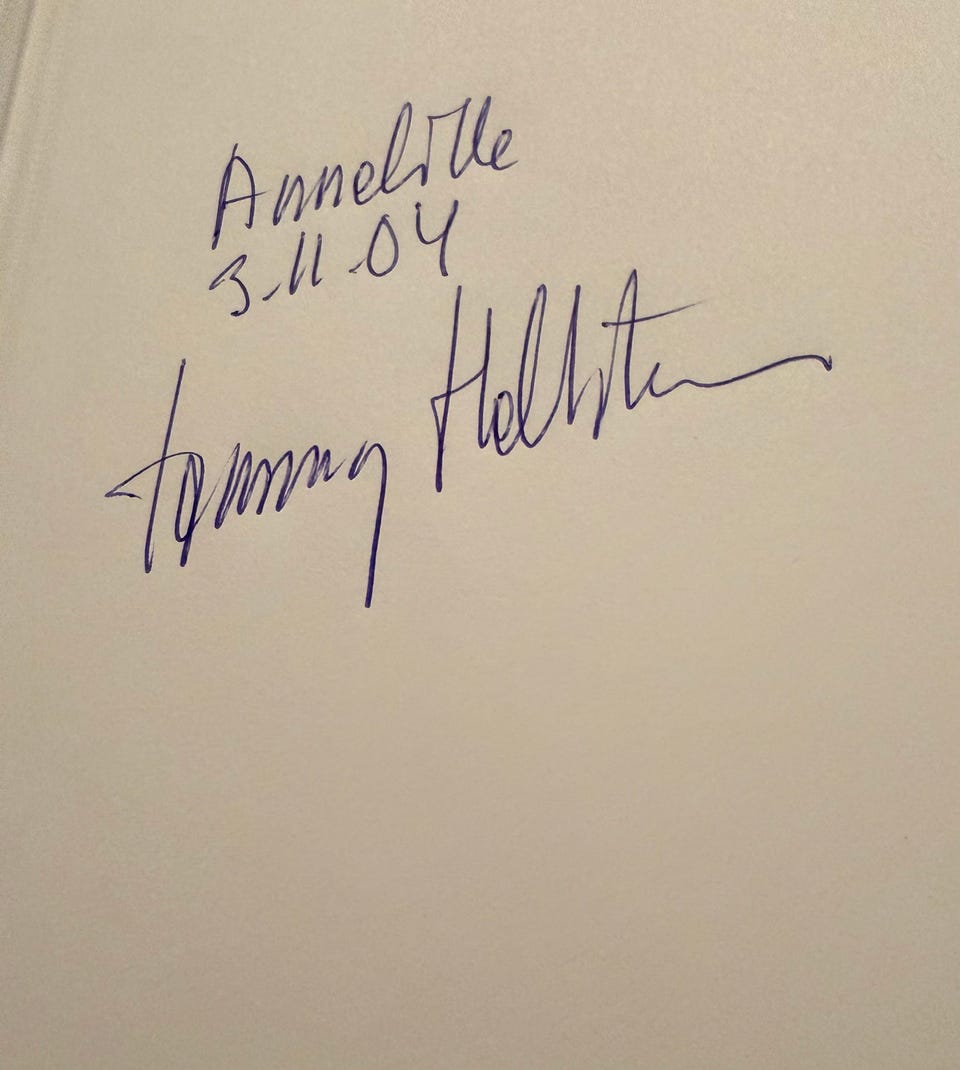 Annelille
3.11.04
Tommy Hellsten